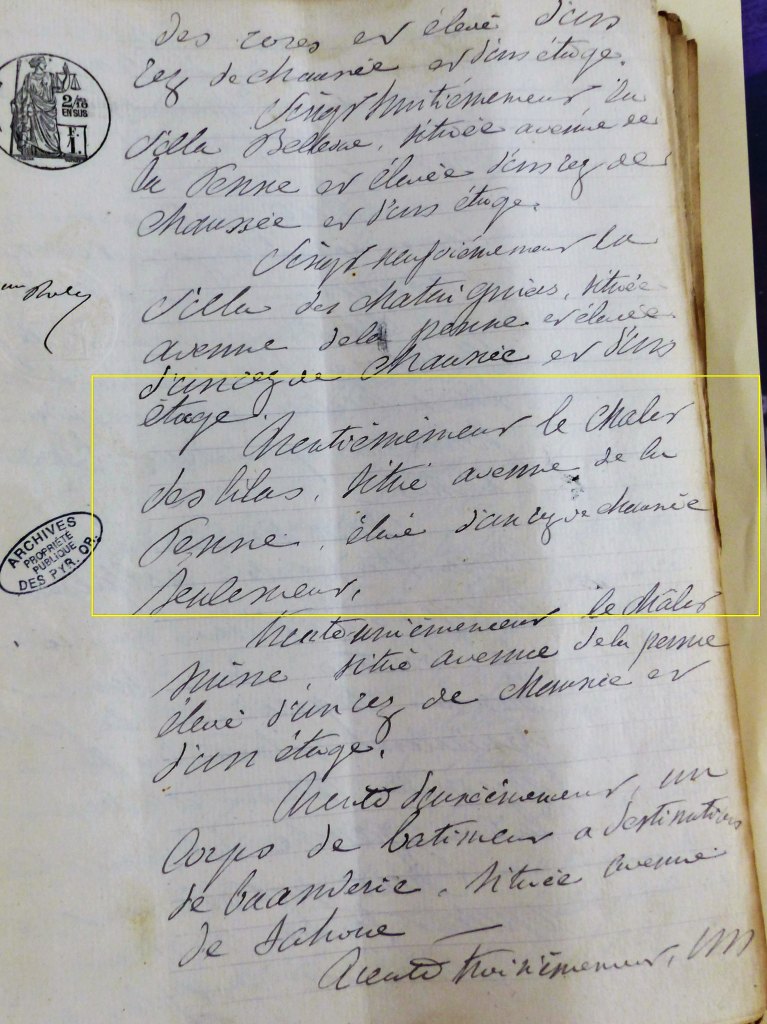 des roses et élevé d'un
rez de chaussée et d'un étage.
Vingt huitièmement la
Villa Bellevue, située avenue de
la Penne et élevée d'un rez de
chaussée et d'un étage.
Vingt neufvièmement la
Villa des , située
avenue de la penne et élevée
d'un rez de chaussée et d'un
étage.
Trentièmement le chalet
des lilas, situé avenue de la
Penne, élevé d'un rez de chaussée
seulement,
Trente unièmement le châlet
suisse, situé avenue de la penne
élevé d'un rez de chaussée et
d'un étage.
Trente deuxièmement, un
corps de batiment a destination
de buanderie, située avenue
de Sahone
Trente troisièmement, un
2/10
EN SUS
F.
1.
ARCHIVES
PROPRIÉTÉ
PUBLIQUE
DES PYR. OR.